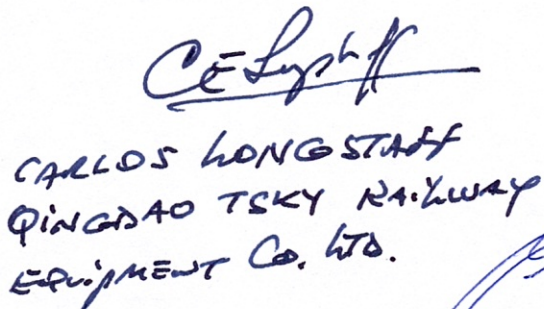 CARLOS LONGSTAFF
QINGDAO TSKY RAILWAY
EQUIPMENT CO. LTD.